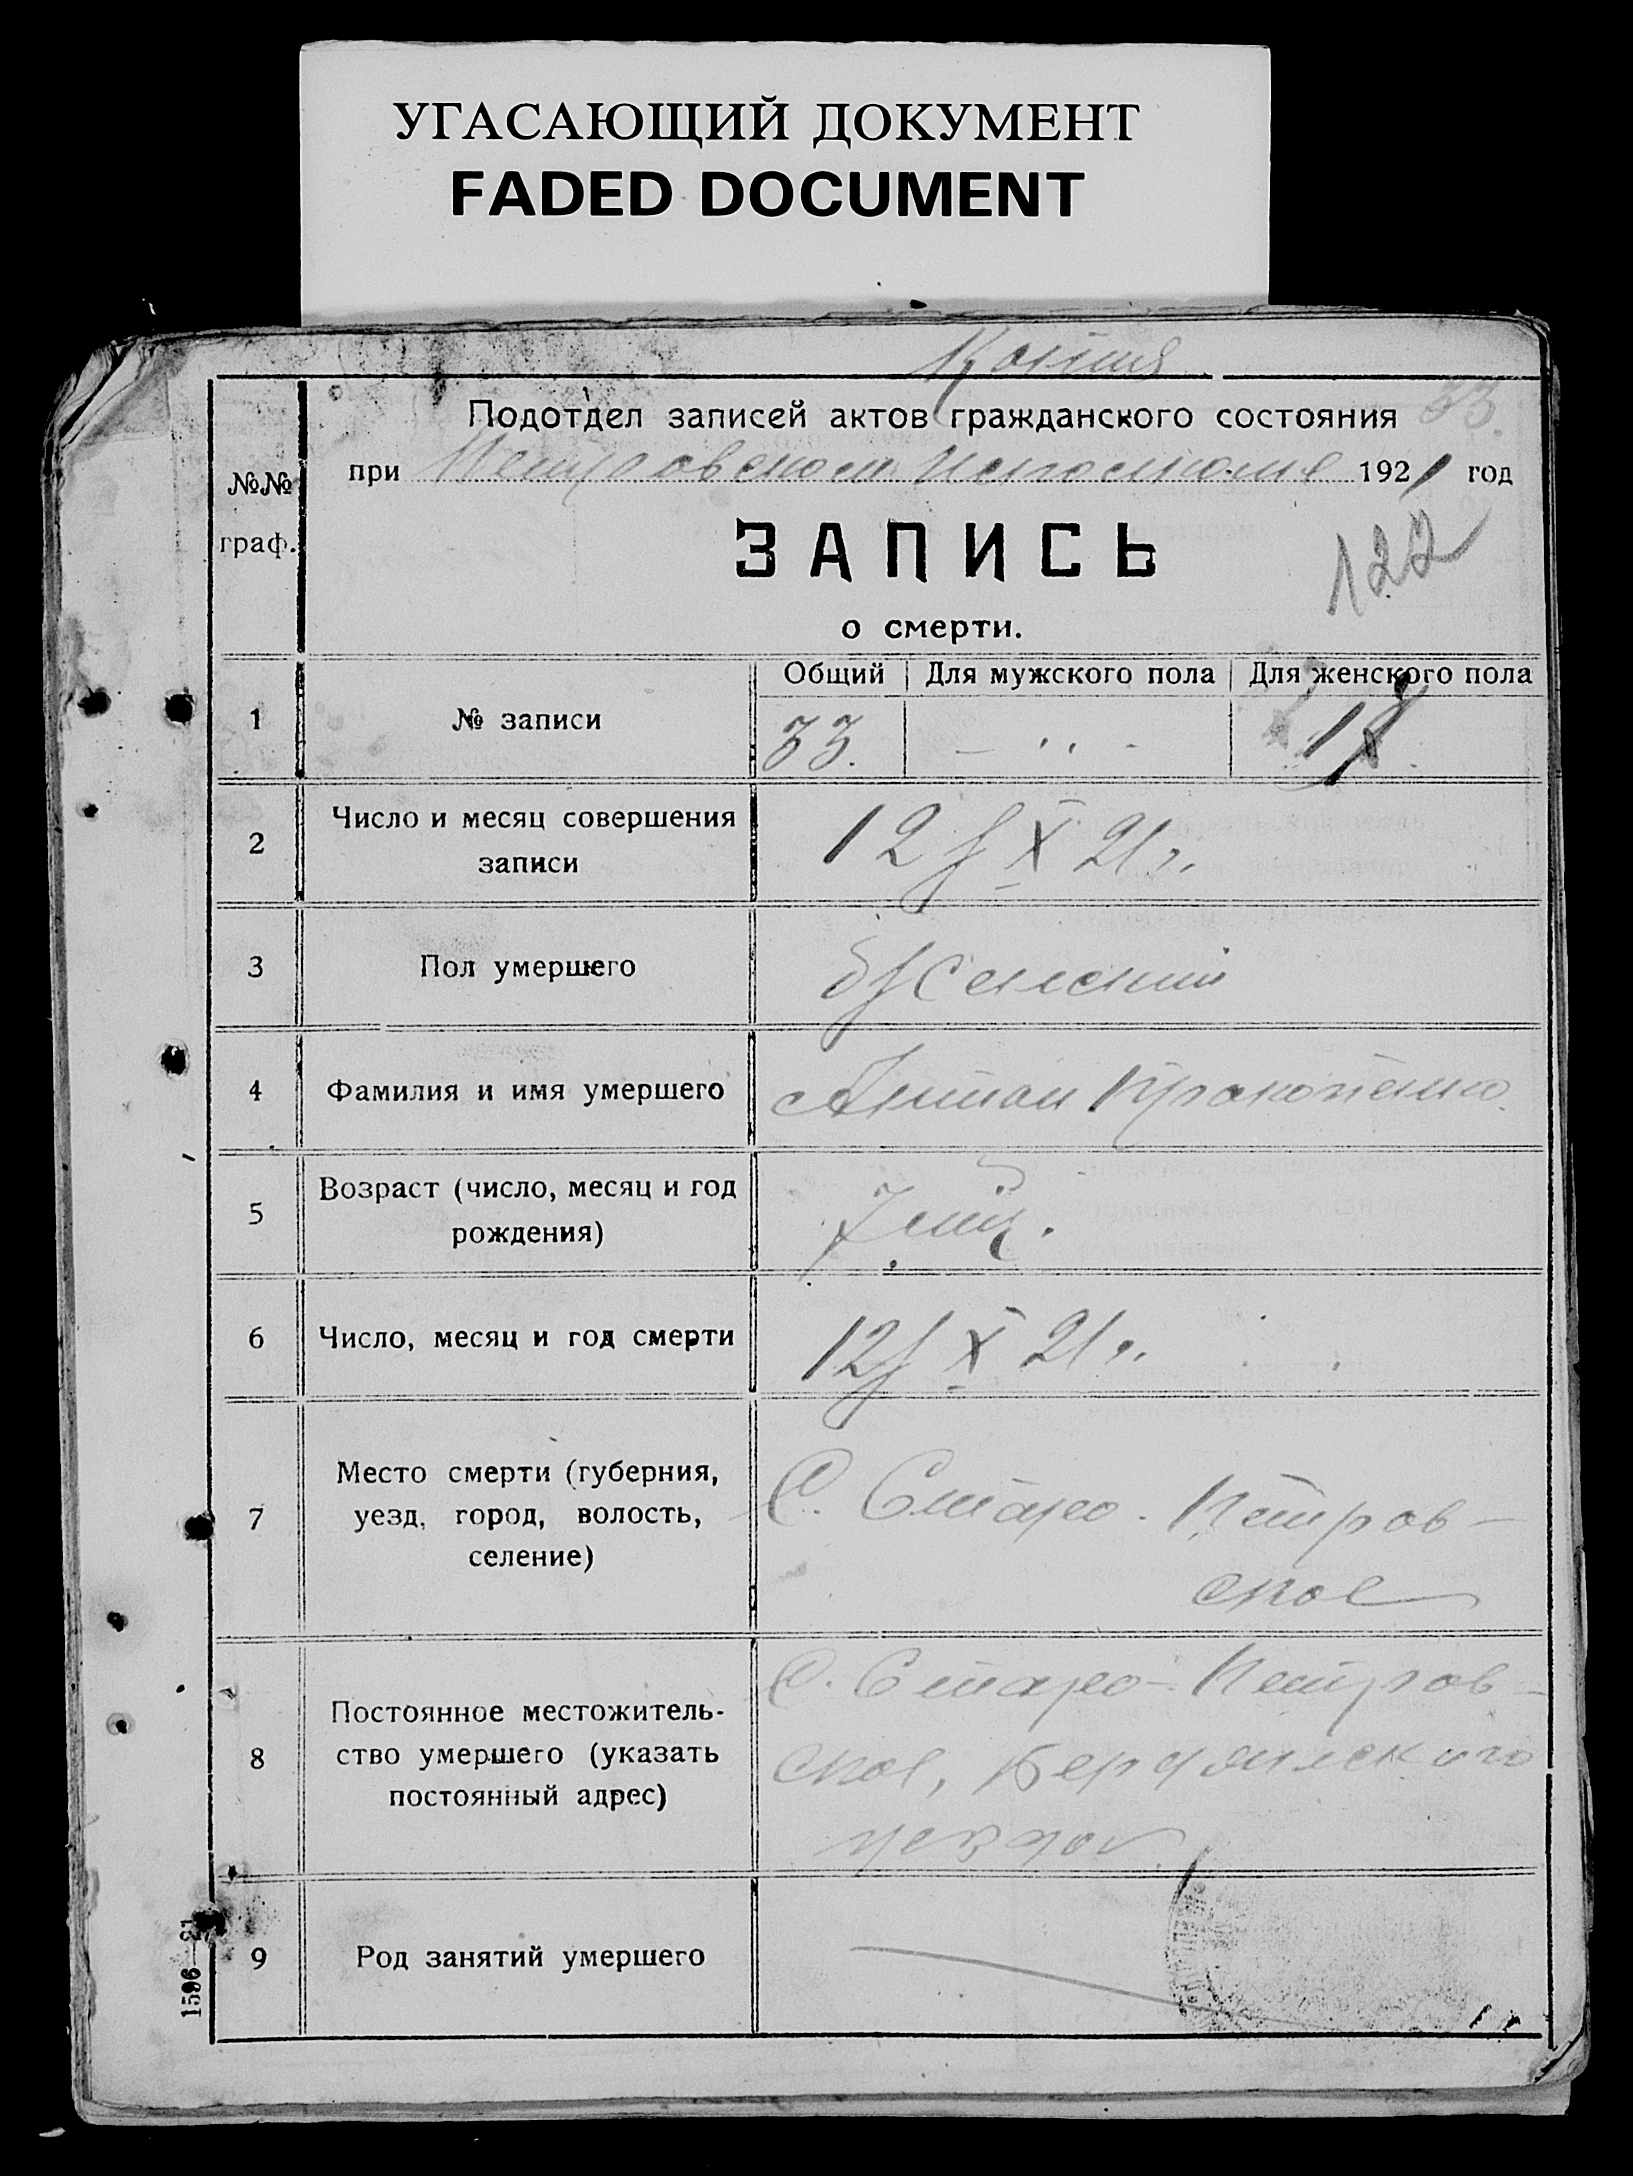 УГАСАЮЩИЙ ДОКУМЕНТ
FADED DOCUMENT
Копия
Подотдел записей актов гражданского состояния 33.
№№ граф.
при Петровском Исполкоме 1921 год
ЗАПИСЬ
122
о смерти.
Общий Для мужского пола Для женского пола
1 № записи 33.
2 Число и месяц совершения
записи
12/X 21 г.
3 Пол умершего Женский
4 Фамилия и имя умершего Прокопенко
5 Возраст (число, месяц и год
рождения)
7 мц.
6 Число, месяц и год смерти 12/X 21 г.
7 Место смерти (губерния,
уезд, город, волость,
селение)
С. Старо-Петров-
ское
8 Постоянное местожитель-
ство умершего (указать
постоянный адрес)
С. Старо-Петров-
ское, Бердянского
уезда
9 Род занятий умершего
1596—21